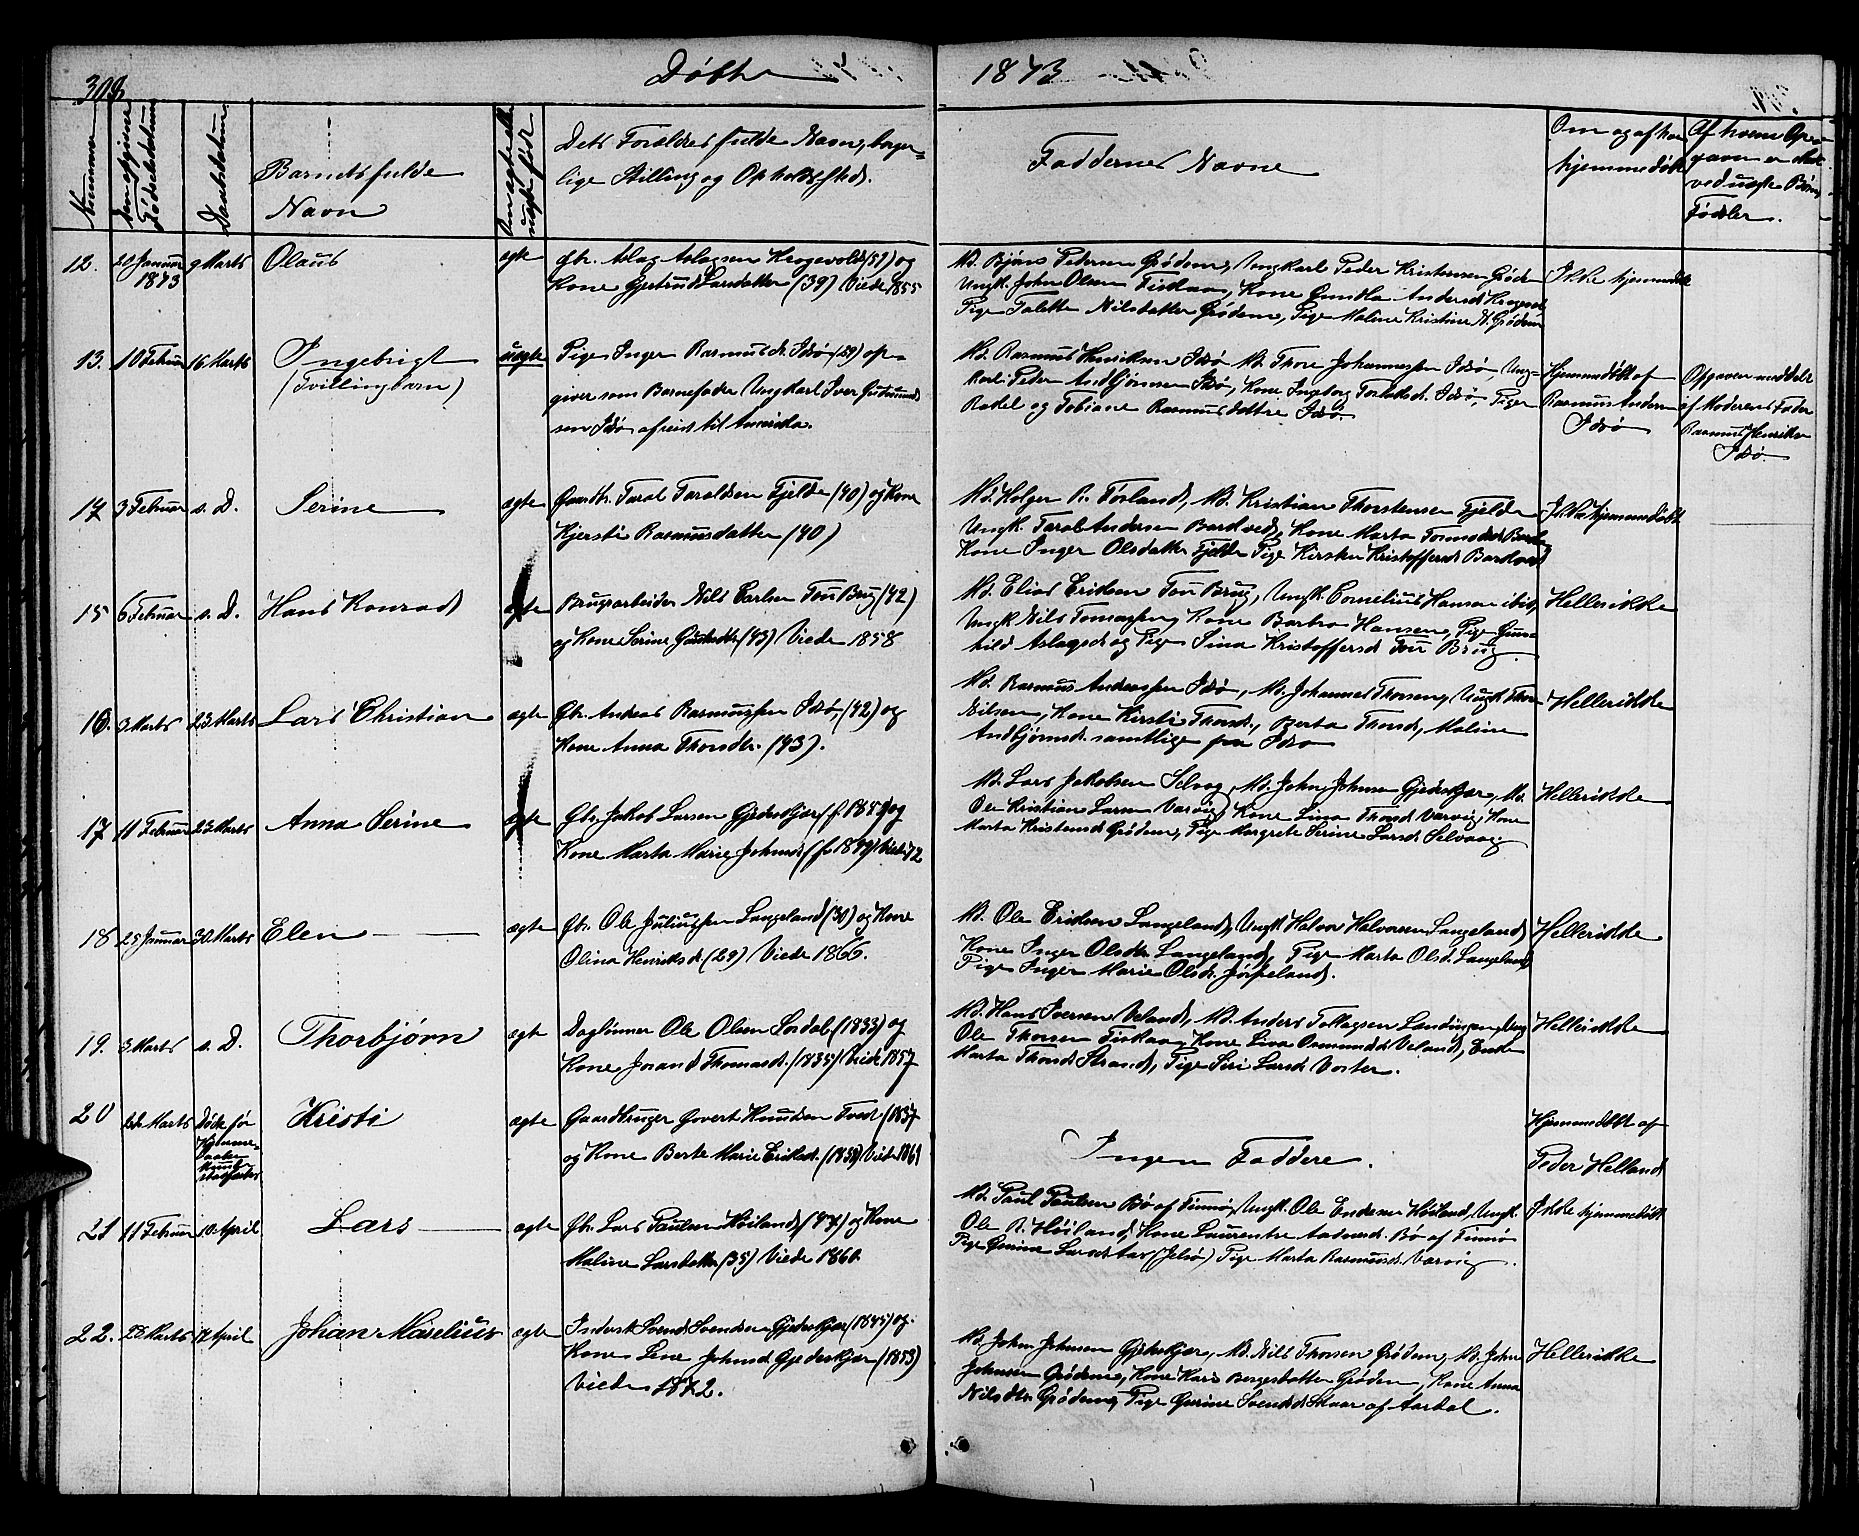 308.
Døbte
1873
Nummer
Fødselsdatum
Daabsdatum
Barnets fulde
Navn
Om ægte eller
uægte født
Dets Forældres fulde Navn, borger-
lige Stilling og Opholdssted.
Faddernes Navne
Om og af hvem
hjemmedøbt
Af hvem Opgaven
ved uægte Børns
Fødsler.
12.
20 Januar
1873
9 Marts
Olaus
ægte
Gbr. Aslag Aslagsen Krogevold (51) og
Kone Gjertrud Larsdatter (39) Viede 1855
Md. Bjarne Pedersen Grødem, Ungkarl Peder Kristensen Grødem
Ungk. John Olsen Fiskaa, Kone Gundla Andersd. Krogevold
Pige Talette Nilsdatter Grødem, Pige Maline Kristine N. Grødem
Ikke hjemmedøbt
13.
10 Februar
16 Marts
Ingebrigt
(Tvillingbarn)
uægte
Pige Inger Rasmusdr. Idsø (29) op-
giver som Barnefader Ungkarl Iver Gudmund-
sen Idsø afreist til Amerika.
Md. Rasmus Henriksen Idsø, Md. Thore Johannessen Idsø, Ung-
karl Peder Andbjørnsen Idsø, Kone Ingeborg Torkelsd. Idsø, Piger
Rakel og Tobiane Rasmusdøttre Idsø.
Hjemmedøbt af
Rasmus Andersen
Idsø
Opgaven meddelt
af Moderens Fader
Rasmus Henriksen
Idsø
14
3 Februar
s. D.
Serine
ægte
Gaardbr. Taral Taraldsen Fjelde (40) og Kone
Kjersti Rasmusdatter (40)
Md. Holger R. Førland, Md. Kristian Thorstensen Fjelde
Ungk. Taral Andersen Barkved, Kone Marta
Kone Inger Olsdatter Fjelde Pige Kirsten Kristoffersd. Barkved
Ikke hjemmedøbt
15
6 Februar
s. D.
Hans Konrad
ægte
Brugsarbeider Nils Carlsen Tou Brug (42)
og Kone Serine (43) Viede 1858
Md. Elias Eriksen Tou Brug, Ungk. Cornelius Hansen ibid,
Ungk Nils Tomassen, Kone Barbra Hansen, Pige Gun-
hild Aslagsd. og Pige Sina Kristoffersd. Tou Brug.
Hellerikke
16.
3 Marts
23 Marts
Lars Christian
ægte
Gbr. Andreas Rasmussen Idsø, (42) og
Kone Anna Thorsdtr. (43).
Md. Rasmus Andreassen Idsø, Md. Johannes Thorsen, Ungk Thore
Nilsen, Kone Kirsti Thorsd., Berta Thorsd., Maline
Andbjørnsd. samtlige fra Idsø
Hellerikke
17
11 Februar
23 Marts
Anna Serine
ægte
Gbr. Jakob Larsen Gjedeskjær (f. 1851) og
Kone Marta Marie Johnsd. (f. 1849) Viede 72
Md. Lars Jakobsen Selvog, Md. John Johnsen Gjedeskjær, Md.
Ole Kristian Larsen Varvig, Kone Lina Thorsd. Varvig, Kone
Marta Kristensd. Grødem, Pige Margrete Serine Larsd. Selvaag
Hellerikke
18
25 Januar
30 Marts
Elen
ægte
Gbr. Ole Juliussen Langeland (30) og Kone
Olina Henriksd. (29) Viede 1866.
Md. Ole Eriksen Langeland, Ungk Halvor Halvorsen Langeland
Kone Inger Olsdtr. Langeland, Pige Marta Olsd. Langeland
Pige Inger Marie Olsdr. Jørpeland.
Hellerikke
19.
3 Marts
s. D.
Thorbjørn
ægte
Daglønner Ole Olsen Sordal (1833) og
Kone Jorand Thomasd. (1835) Viede 1857
Md. Hans Iversen Veland, Md. Anders Tollagsen Landingen, Ung
Ole Thorsen Fiskaa, Kone Lina Osmundsd. Veland, Enke
Marta Thorsd. Strand, Pige Siri Larsd. Voster.
Hellerikke
20
Marts
Døde før
Kristi
ægte
Gaardbruger Govert Knudsen Tveit (1837
og Kone Berte Marie Eriksd. (1838) Viede 1861
Ingen Faddere.
Hjemmedøbt af
Peder Helland
21
11 Februar
10 April
Lars
ægte
Gbr. Lars Paulsen Høiland, (47) og Kone
Maline Larsdatter (35) Viede 1860.
Md. Paul Paulsen Bø af Finnø, Ungk. Ole Endresen Høiland, Ungk.
Ole R. Høiland, Kone Laurentse Andersd. Bø af Finnø
Pige Gurine Larsd. Aas (Jelsø) Pige Marta Rasmusd. Varvig.
Ikke hjemmedøbt
22.
28 Marts
12 April
Johan Maselius
ægte
Inderst Svend Svendsen Gjedeskjær (1845) og
Kone Lene Johnsd. Gjedeskjær (1853)
Viede 1872.
Md. John Johnsen Gjedeskjær, Md. Nils Thorsen Grødem, Md. John
Johnsen Grødem, Kone Kari Bergesdatter Grødem, Kone Anna
Nilsdtr. Grødem, Pige Gurine Svendsd. Skaar af Aardal.
Hellerikke